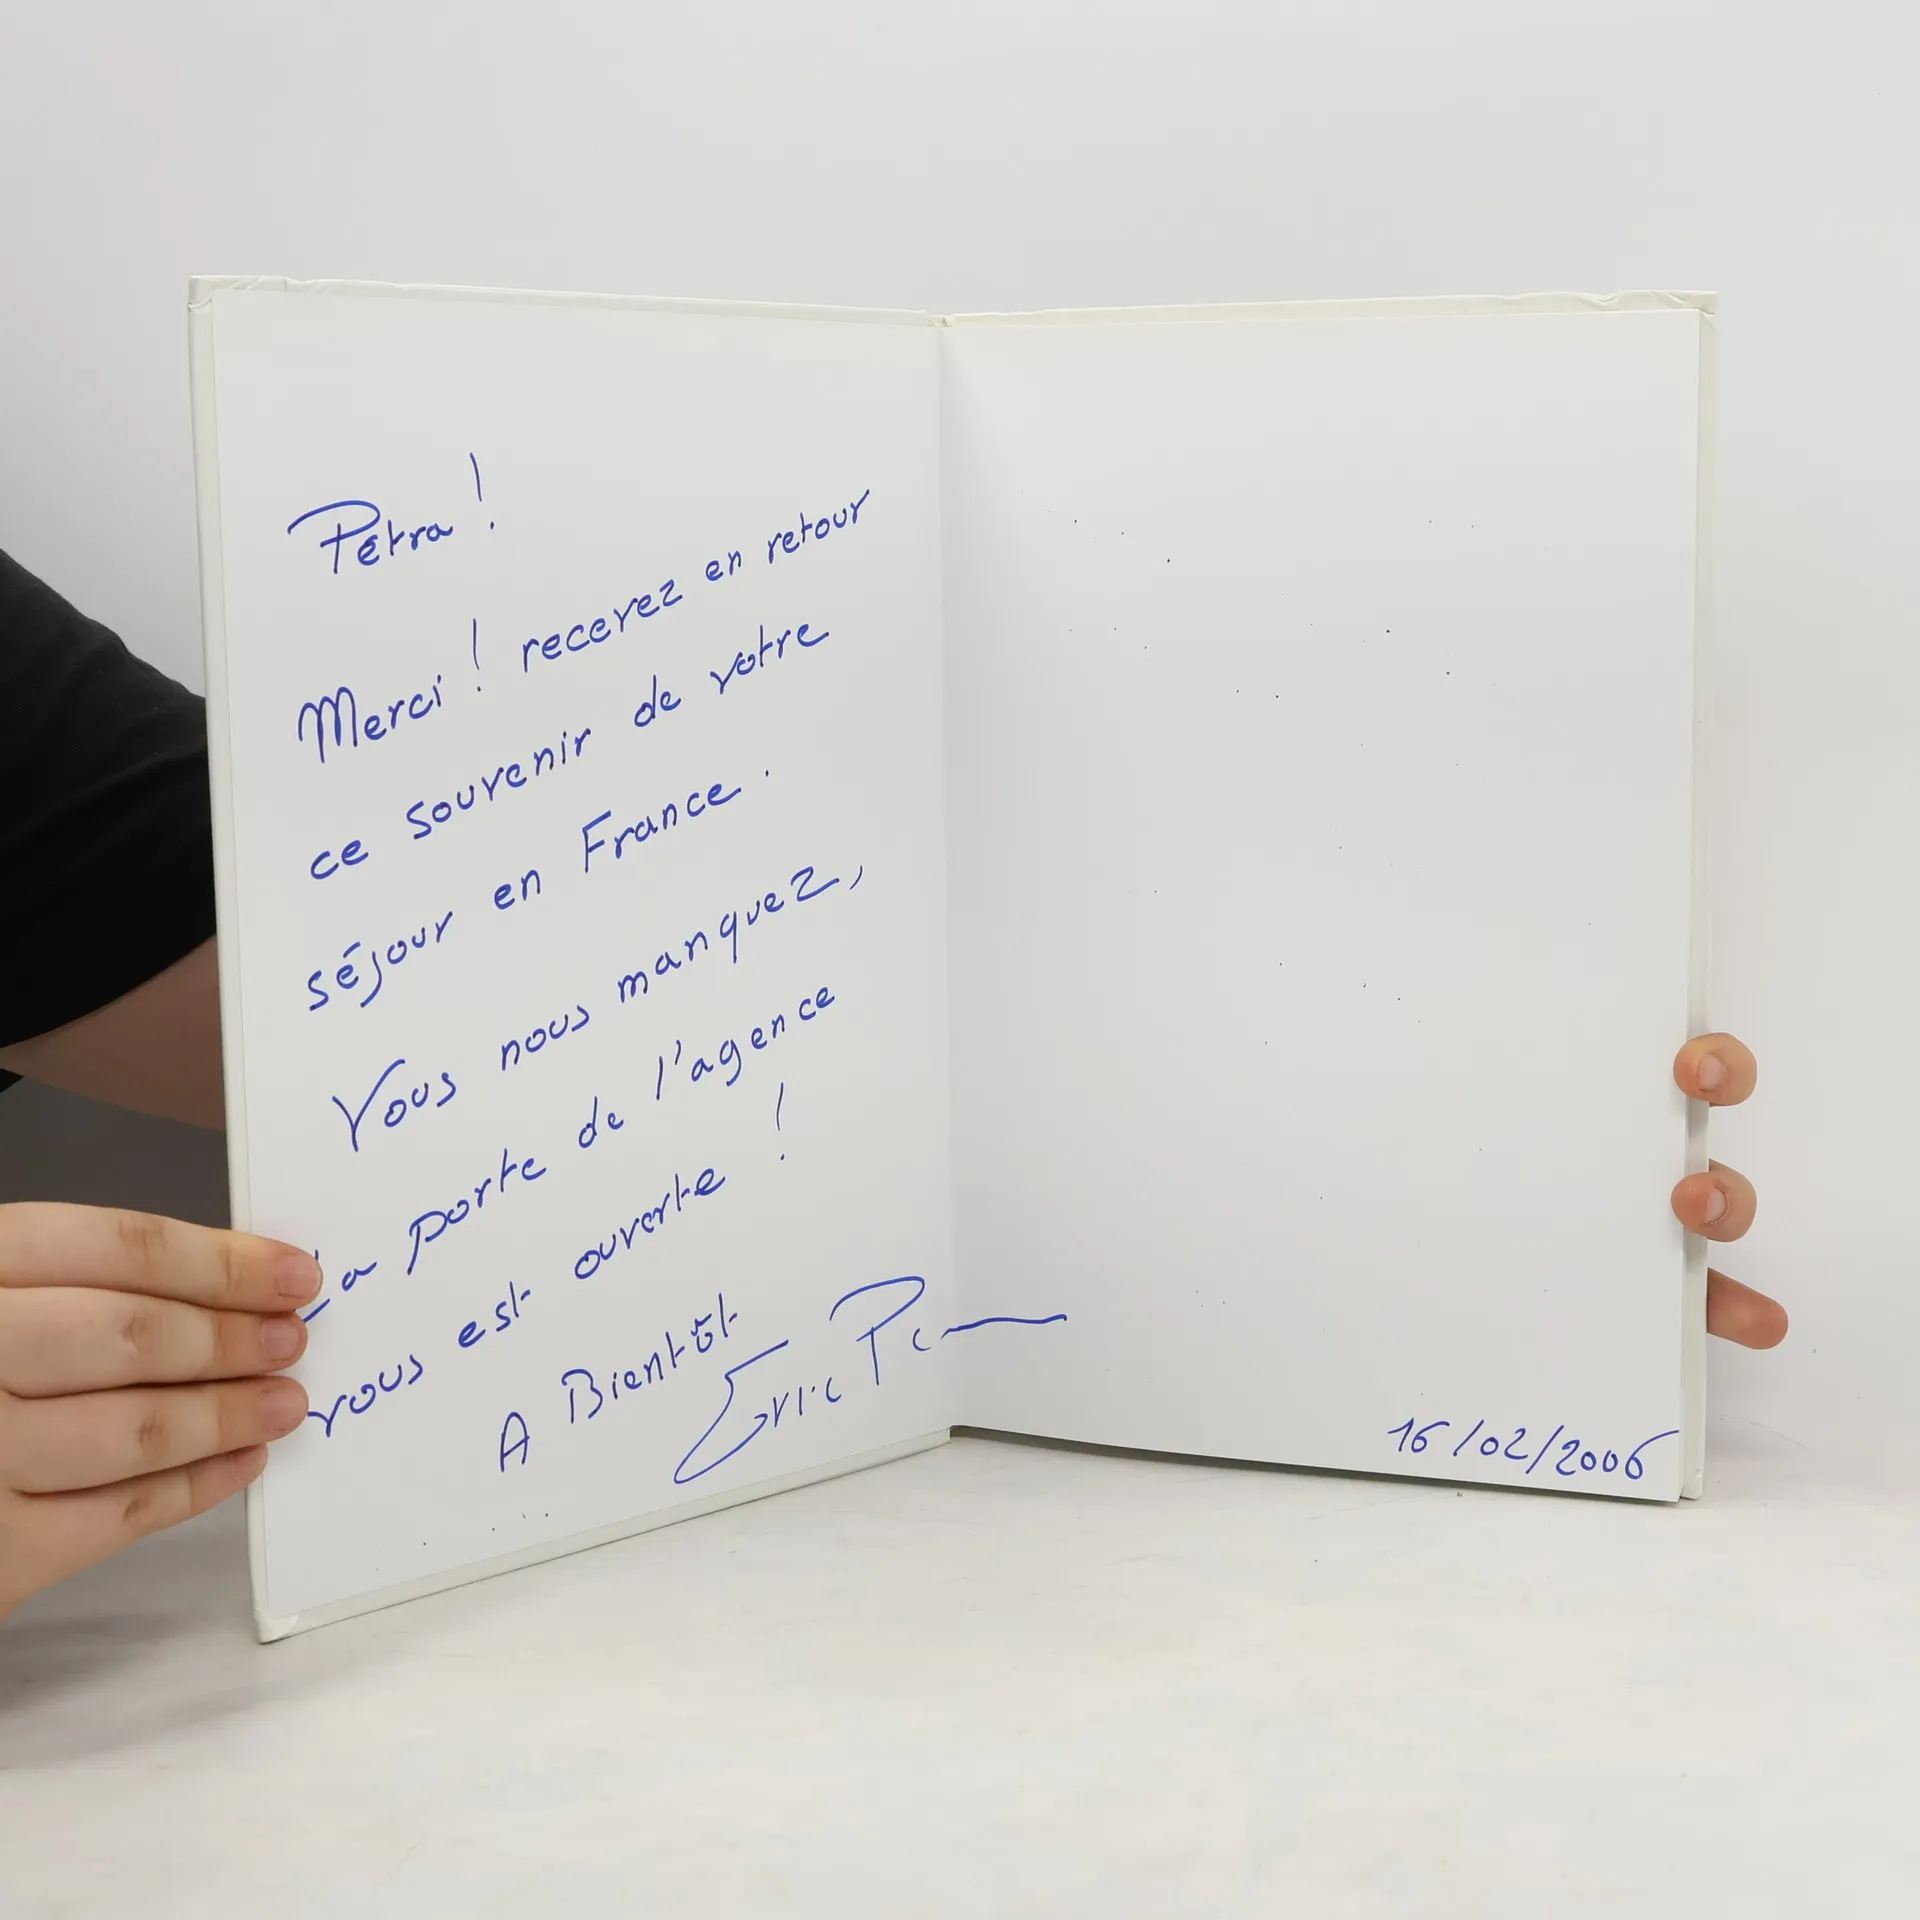 Petra !
Merci ! recevez en retour
ce souvenir de votre
séjour en France.
Vous nous manquez,
La porte de l'agence
vous est ouverte !
A Bientôt
Eric
16/02/2006